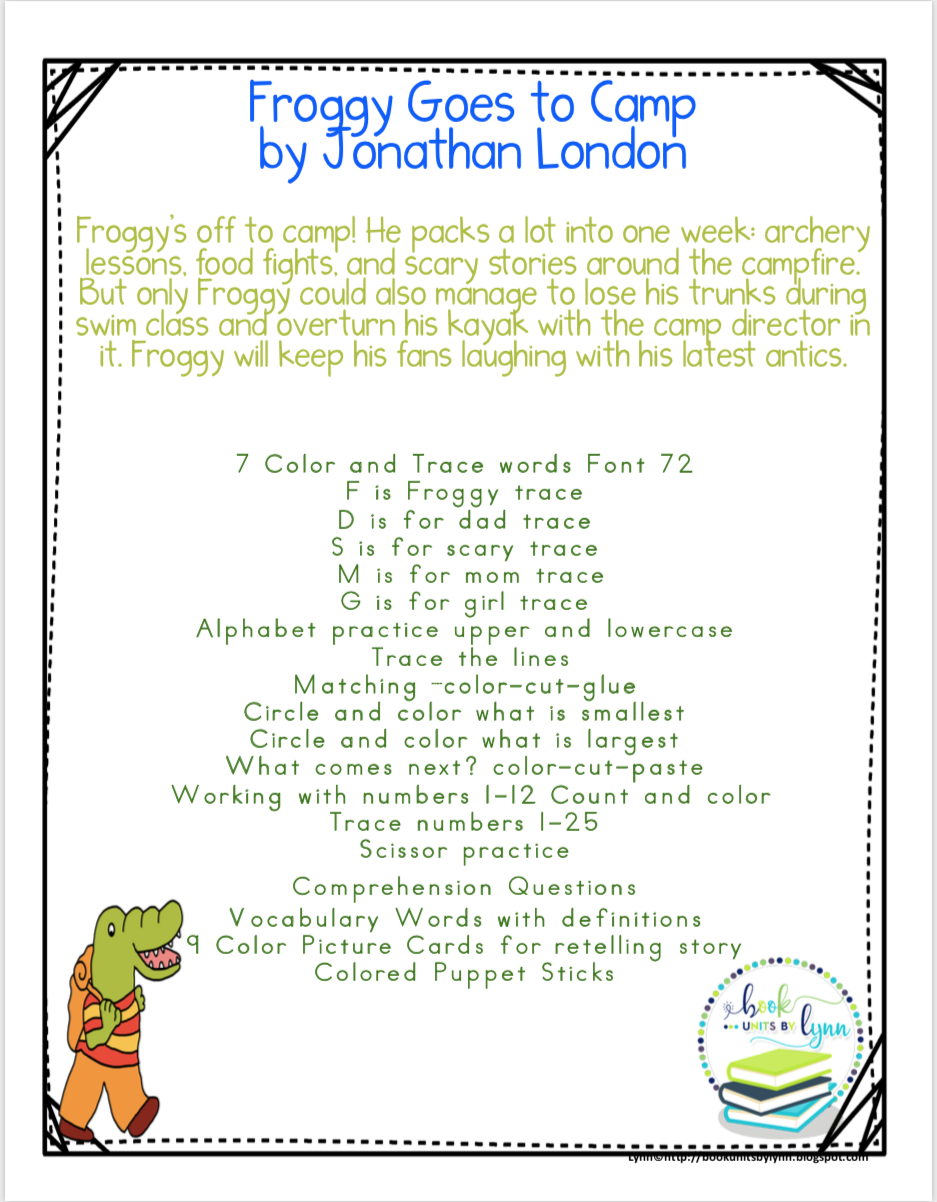 Froggy Goes to Camp
by Jonathan London
Froggy's off to camp! He packs a lot into one week: archery
lessons, food fights, and scary stories around the campfire.
But only Froggy could also manage to lose his trunks during
swim class and overturn his kayak with the camp director in
it. Froggy will keep his fans laughing with his latest antics.
7 Color and Trace words Font 72
F is Froggy trace
D is for dad trace
S is for scary trace
M is for mom trace
G is for girl trace
Alphabet practice upper and lowercase
Trace the lines
Matching –color-cut-glue
Circle and color what is smallest
Circle and color what is largest
What comes next? color-cut-paste
Working with numbers 1-12 Count and color
Trace numbers 1-25
Scissor practice
Comprehension Questions
Vocabulary Words with definitions
9 Color Picture Cards for retelling story
Colored Puppet Sticks
book
UNITS BY lynn
Lynn©http://bookunitsbylynn.blogspot.com